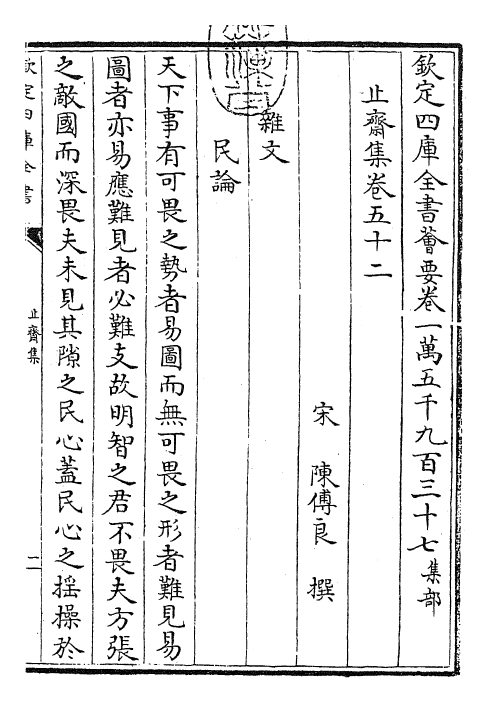 欽定四庫全書薈要卷一萬五千九百三十七 集部
止齋集卷五十二
宋 陳傅良 撰
雜文
民論
天下事有可畏之勢者易圖而無可畏之形者難見易
圖者亦易應難見者必難支故明智之君不畏夫方張
之敵國而深畏夫未見其隙之民心蓋民心之揺操於
欽定四庫全書
止齋集